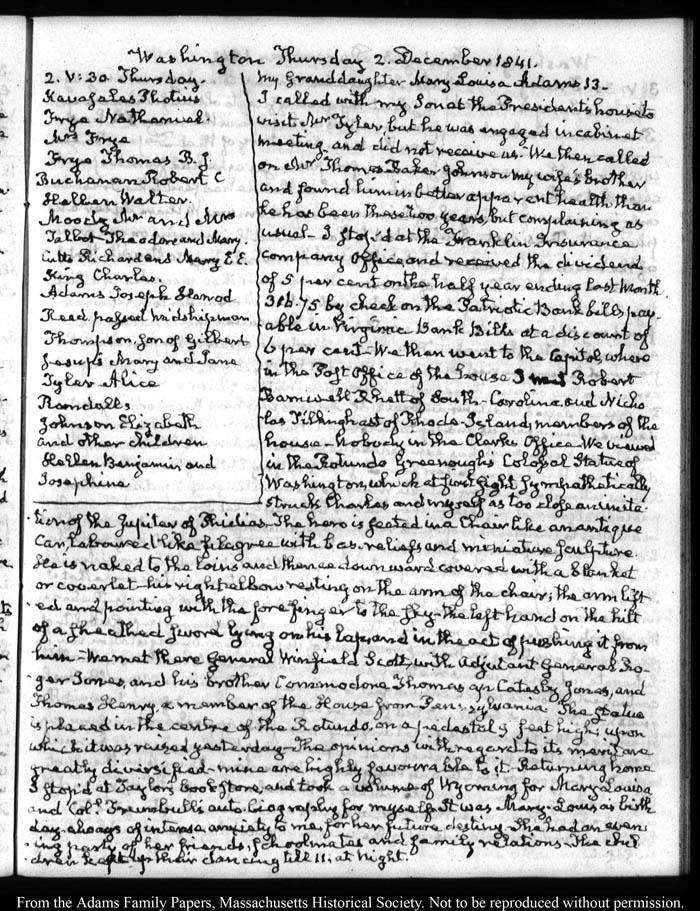 Washington Thursday 2. December 1841.
2. V:30. Thursday.
Kavasales Photius
Frye Nathaniel
Mrs Frye
Frye Thomas B. J.
Buchanan Robert C
Hellen Walter.
Moody Mr and Mrs
Talbot Theodore and Mary.
Cutts Richard and Mary E. E.
King Charles.
Adams Joseph Harrod
Read passed midshipman
Thompson, son of Gilbert
Jesups Mary and Jane
Tyler Alice
Randalls
Johnson Elizabeth
and other children
Hellen Benjamin and
Josephine
My Granddaughter Mary Louisa Adams 13—
I called with my Son at the President's house to
visit Mr Tyler, but he was engaged in cabinet
meeting and did not receive us. We then called
on Mr Thomas Baker Johnson my wife's brother
and found him in better apparent health than
he has been these two years, but complaining as
usual— I stop'd at the Franklin Insurance
company Office and received the dividend
of 5 per cent on the half year ending last Month
318.75 by check on the Patriotic Bank bills pay-
able in Virginia Bank Bills at a discount of
6 per cent— We then went to the Capitol, where
in the Post Office of the house I met Robert
Barnwell Rhett of South-Carolina, and Nicho
las Tillinghast of Rhode-Island, members of the
house— Nobody in the Clerks Office— We viewed
in the Rotundo Greenough's Colossal Statue of
Washington, which at first sight sympathetically
struck Charles and myself as too close an imita-
tion of the Jupiter of Phidias. The hero is seated in a Chair like an antique
Car, laboured like filagree with bas-reliefs and miniature sculpture.
He is naked to the loins and thence downward covered with a blanket
or coverlet his right elbow resting on the arm of the chair; the arm lift-
ed and pointing with the forefinger to the sky—the left hand on the hilt
of a sheathed sword lying on his lap, and in the act of pushing it from
him— We met there General Winfield Scott, with Adjutant General Ro-
ger Jones, and his brother Commodore Thomas ap Catesby Jones, and
Thomas Henry, a member of the House from Pennsylvania. The Statue
is placed in the centre of the Rotundo, on a pedestal 5 feet high, upon
which it was raised yesterday— The opinions with regard to its merit are
greatly diversified— mine are highly favourable to it. Returning home
I stop'd at Taylor's bookstore, and took a volume of Wyoming for Mary-Louisa
and Col. Trumbull's auto-biography for myself. It was Mary-Louisa's birth
day—always of intense anxiety to me, for her future destiny. She had an even
ing party of her friends, schoolmates and family relations—The chil
dren kept up their dancing till 11, at Night.
From the Adams Family Papers, Massachusetts Historical Society. Not to be reproduced without permission.